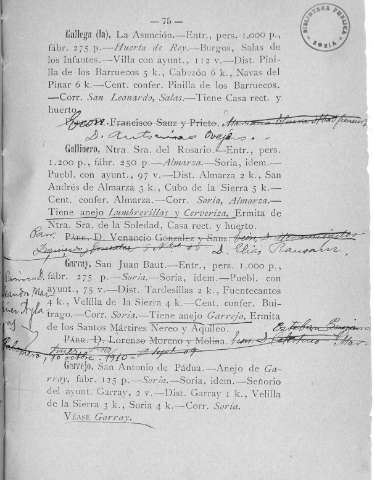 — 75 —
BIBLIOTECA PUBLICA
SORIA
Gallega (la), La Asunción.—Entr., pers. 1.000 p.,
fábr. 275 p.—Huerta de Rey.—Burgos, Salas de
los Infantes.—Villa con ayunt., 112 v.—Dist. Pini-
lla de los Barruecos 5 k., Cabezón 6 k., Navas del
Pinar 6 k.—Cent. confer. Pinilla de los Barruecos.
—Corr. San Leonardo, Salas.—Tiene Casa rect. y
huerto.
Francisco Sanz y Prieto.
D. Antonino Ovejas
Gallinero, Ntra. Sra. del Rosario.—Entr., pers.
1.200 p., fábr. 250 p.—Almarza.—Soria, idem.—
Puebl. con ayunt., 97 v.—Dist. Almarza 2 k., San
Andrés de Almarza 3 k., Cubo de la Sierra 3 k.—
Cent. confer. Almarza.—Corr. Soria, Almarza.—
Tiene anejo Lumbrerillas y Cerveriza, Ermita de
Ntra. Sra. de la Soledad, Casa rect. y huerto.
Párr. D. Venancio González y Sanz
D. Elías
Garray, San Juan Baut.—Entr., pers. 1.000 p.,
fábr. 275 p.—Soria.—Soria, idem.—Puebl. con
ayunt., 75 v.—Dist. Tardesillas 2 k., Fuentecantos
4 k., Velilla de la Sierra 4 k.—Cent. confer. Bui-
trago.—Corr. Soria.—Tiene anejo Garrejo, Ermita
de los Santos Mártires Nereo y Aquileo.
Párr. D. Lorenzo Moreno y Molina.
octubre 1910
Garrejo, San Antonio de Pádua.—Anejo de Ga-
rray, fábr. 125 p.—Soria.—Soria, idem.—Señorío
del ayunt. Garray, 2 v.—Dist. Garray 1 k., Velilla
de la Sierra 3 k., Soria 4 k.—Corr. Soria.
Véase Garray.